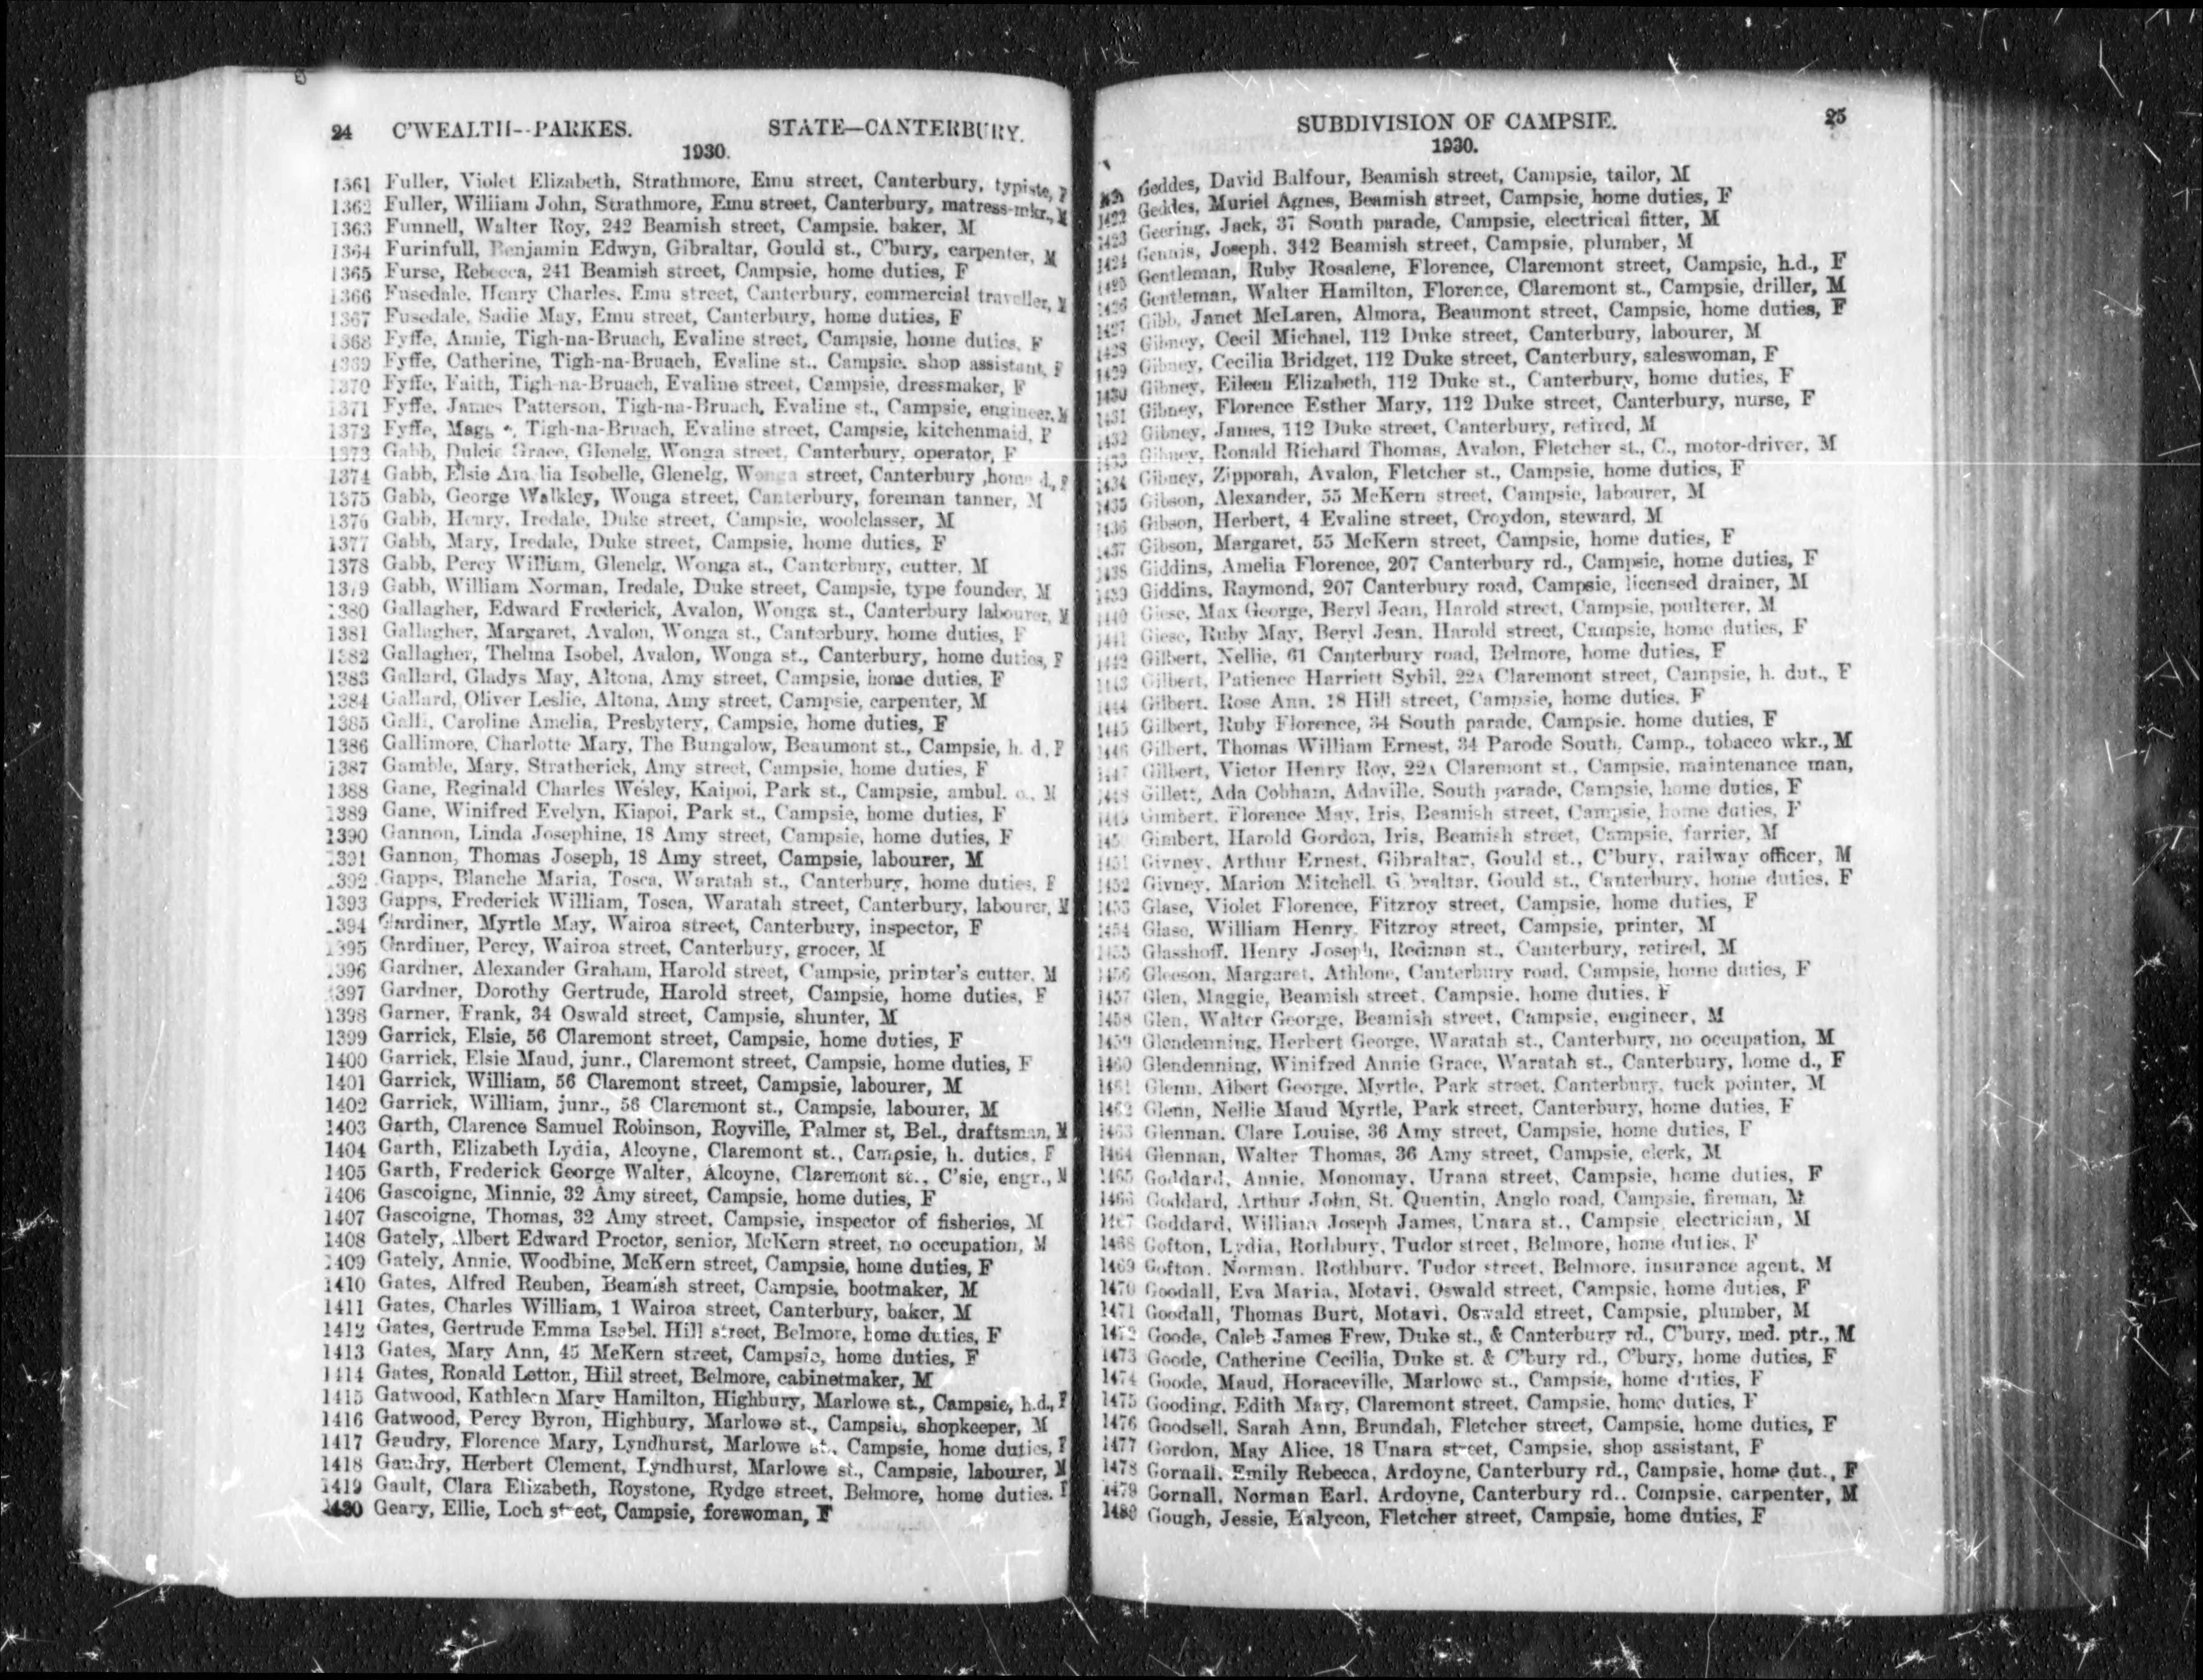 24 C'WEALTH--PARKES. STATE—CANTERBURY.
1930.
1361 Fuller, Violet Elizabeth, Strathmore, Emu street, Canterbury, typiste, F
1362 Fuller, William John, Strathmore, Emu street, Canterbury, matress-mkr., M
1363 Funnell, Walter Roy, 242 Beamish street, Campsie. baker, M
1364 Furinfull, Benjamin Edwyn, Gibraltar, Gould st., C'bury, carpenter, M
1365 Furse, Rebecca, 241 Beamish street, Campsie, home duties, F
1366 Fusedale, Henry Charles, Emu street, Canterbury, commercial traveller, M
1367 Fusedale, Sadie May, Emu street, Canterbury, home duties, F
1368 Fyffe, Annie, Tigh-na-Bruach, Evaline street, Campsie, home duties, F
1369 Fyffe, Catherine, Tigh-na-Bruach, Evaline st., Campsie, shop assistant, F
1370 Fyffe, Faith, Tigh-na-Bruach, Evaline street, Campsie, dressmaker, F
1371 Fyffe, James Patterson, Tigh-na-Bruach, Evaline st., Campsie, engineer, M
1372 Fyffe, Tigh-na-Bruach, Evaline street, Campsie, kitchenmaid, F
1373 Gabb, Dulcie Grace, Glenelg, Wonga street, Canterbury, operator, F
1374 Gabb, Elsie Amelia Isobelle, Glenelg, Wonga street, Canterbury ,home d., F
1375 Gabb, George Walkley, Wonga street, Canterbury, foreman tanner, M
1376 Gabb, Henry, Iredale, Duke street, Campsie, woolclasser, M
1377 Gabb, Mary, Iredale, Duke street, Campsie, home duties, F
1378 Gabb, Percy William, Glenelg, Wonga st., Canterbury, cutter, M
1379 Gabb, William Norman, Iredale, Duke street, Campsie, type founder, M
1380 Gallagher, Edward Frederick, Avalon, Wonga st., Canterbury labourer, M
1381 Gallagher, Margaret, Avalon, Wonga st., Canterbury, home duties, F
1382 Gallagher, Thelma Isobel, Avalon, Wonga st., Canterbury, home duties, F
1383 Gallard, Gladys May, Altona, Amy street, Campsie, home duties, F
1384 Gallard, Oliver Leslie, Altona, Amy street, Campsie, carpenter, M
1385 Galli, Caroline Amelia, Presbytery, Campsie, home duties, F
1386 Gallimore, Charlotte Mary, The Bungalow, Beaumont st., Campsie, h. d., F
1387 Gamble, Mary, Stratherick, Amy street, Campsie, home duties, F
1388 Gane, Reginald Charles Wesley, Kaipoi, Park st., Campsie, ambul. o., M
1389 Gane, Winifred Evelyn, Kiapoi, Park st., Campsie, home duties, F
1390 Gannon, Linda Josephine, 18 Amy street, Campsie, home duties, F
1391 Gannon, Thomas Joseph, 18 Amy street, Campsie, labourer, M
1392 Gapps, Blanche Maria, Tosca, Waratah st., Canterbury, home duties, F
1393 Gapps, Frederick William, Tosca, Waratah street, Canterbury, labourer, M
1394 Gardiner, Myrtle May, Wairoa street, Canterbury, inspector, F
1395 Gardiner, Percy, Wairoa street, Canterbury, grocer, M
1396 Gardner, Alexander Graham, Harold street, Campsie, printer's cutter, M
1397 Gardner, Dorothy Gertrude, Harold street, Campsie, home duties, F
1398 Garner, Frank, 34 Oswald street, Campsie, shunter, M
1399 Garrick, Elsie, 56 Claremont street, Campsie, home duties, F
1400 Garrick, Elsie Maud, junr., Claremont street, Campsie, home duties, F
1401 Garrick, William, 56 Claremont street, Campsie, labourer, M
1402 Garrick, William, junr., 56 Claremont st., Campsie, labourer, M
1403 Garth, Clarence Samuel Robinson, Royville, Palmer st, Bel., draftsman, M
1404 Garth, Elizabeth Lydia, Alcoyne, Claremont st., Campsie, h. duties, F
1405 Garth, Frederick George Walter, Alcoyne, Claremont st., C'sie, engr., M
1406 Gascoigne, Minnie, 32 Amy street, Campsie, home duties, F
1407 Gascoigne, Thomas, 32 Amy street, Campsie, inspector of fisheries, M
1408 Gately, Albert Edward Proctor, senior, McKern street, no occupation, M
1409 Gately, Annie, Woodbine, McKern street, Campsie, home duties, F
1410 Gates, Alfred Reuben, Beamish street, Campsie, bootmaker, M
1411 Gates, Charles William, 1 Wairoa street, Canterbury, baker, M
1412 Gates, Gertrude Emma Isabel, Hill street, Belmore, home duties, F
1413 Gates, Mary Ann, 45 McKern street, Campsie, home duties, F
1414 Gates, Ronald Letton, Hill street, Belmore, cabinetmaker, M
1415 Gatwood, Kathleen Mary Hamilton, Highbury, Marlowe st., Campsie, h.d., F
1416 Gatwood, Percy Byron, Highbury, Marlowe st., Campsie, shopkeeper, M
1417 Gaudry, Florence Mary, Lyndhurst, Marlowe st., Campsie, home duties, F
1418 Gaudry, Herbert Clement, Lyndhurst, Marlowe st., Campsie, labourer, M
1419 Gault, Clara Elizabeth, Roystone, Rydge street, Belmore, home duties, F
1420 Geary, Ellie, Loch street, Campsie, forewoman, F
SUBDIVISION OF CAMPSIE. 25
1930.
Geddes, David Balfour, Beamish street, Campsie, tailor, M
1422 Geddes, Muriel Agnes, Beamish street, Campsie, home duties, F
1423 Geering, Jack, 37 South parade, Campsie, electrical fitter, M
1424 Gennis, Joseph, 342 Beamish street, Campsie, plumber, M
1425 Gentleman, Ruby Rosalene, Florence, Claremont street, Campsie, h.d., F
1426 Gentleman, Walter Hamilton, Florence, Claremont st., Campsie, driller, M
1427 Gibb, Janet McLaren, Almora, Beaumont street, Campsie, home duties, F
1428 Gibney, Cecil Michael, 112 Duke street, Canterbury, labourer, M
1429 Gibney, Cecilia Bridget, 112 Duke street, Canterbury, saleswoman, F
1430 Gibney, Eileen Elizabeth, 112 Duke st., Canterbury, home duties, F
1431 Gibney, Florence Esther Mary, 112 Duke street, Canterbury, nurse, F
1432 Gibney, James, 112 Duke street, Canterbury, retired, M
1433 Gibney, Ronald Richard Thomas, Avalon, Fletcher st., C., motor-driver, M
1434 Gibney, Zipporah, Avalon, Fletcher st., Campsie, home duties, F
1435 Gibson, Alexander, 55 McKern street, Campsie, labourer, M
1436 Gibson, Herbert, 4 Evaline street, Croydon, steward, M
1437 Gibson, Margaret, 55 McKern street, Campsie, home duties, F
1438 Giddins, Amelia Florence, 207 Canterbury rd., Campsie, home duties, F
1439 Giddins, Raymond, 207 Canterbury road, Campsie, licensed drainer, M
1440 Giese, Max George, Beryl Jean, Harold street, Campsie, poulterer, M
1441 Giese, Ruby May, Beryl Jean, Harold street, Campsie, home duties, F
1442 Gilbert, Nellie, 61 Canterbury road, Belmore, home duties, F
1443 Gilbert, Patience Harriett Sybil, 22A Claremont street, Campsie, h. dut., F
1444 Gilbert, Rose Ann, 18 Hill street, Campsie, home duties, F
1445 Gilbert, Ruby Florence, 34 South parade, Campsie, home duties, F
1446 Gilbert, Thomas William Ernest, 34 Parode South, Camp., tobacco wkr., M
1447 Gilbert, Victor Henry Roy, 22A Claremont st., Campsie, maintenance man,
1448 Gillett, Ada Cobham, Adaville, South parade, Campsie, home duties, F
1449 Gimbert, Florence May, Iris, Beamish street, Campsie, home duties, F
145 Gimbert, Harold Gordon, Iris, Beamish street, Campsie, farrier, M
1451 Givney, Arthur Ernest, Gibraltar, Gould st., C'bury, railway officer, M
1452 Givney, Marion Mitchell, Gibraltar, Gould st., Canterbury, home duties, F
1453 Glase, Violet Florence, Fitzroy street, Campsie, home duties, F
1454 Glase, William Henry, Fitzroy street, Campsie, printer, M
1455 Glasshoff, Henry Joseph, Redman st., Canterbury, retired, M
1456 Gleeson, Margaret, Athlone, Canterbury road, Campsie, home duties, F
1457 Glen, Maggie, Beamish street, Campsie, home duties, F
1458 Glen, Walter George, Beamish street, Campsie, engineer, M
1459 Glendenning, Herbert George, Waratah st., Canterbury, no occupation, M
1460 Glendenning, Winifred Annie Grace, Waratah st., Canterbury, home d., F
1461 Glenn, Albert George, Myrtle, Park street, Canterbury, tuck pointer, M
1462 Glenn, Nellie Maud Myrtle, Park street, Canterbury, home duties, F
1463 Glennan, Clare Louise, 36 Amy street, Campsie, home duties, F
1464 Glennan, Walter Thomas, 36 Amy street, Campsie, clerk, M
1465 Goddard, Annie, Monomay, Urana street, Campsie, home duties, F
1466 Goddard, Arthur John, St. Quentin, Anglo road, Campsie, fireman, M
1467 Goddard, William Joseph James, Unara st., Campsie, electrician, M
1468 Gofton, Lydia, Rothbury, Tudor street, Belmore, home duties, F
1469 Gofton, Norman, Rothbury, Tudor street, Belmore, insurance agent, M
1470 Goodall, Eva Maria, Motavi, Oswald street, Campsie, home duties, F
1471 Goodall, Thomas Burt, Motavi, Oswald street, Campsie, plumber, M
1472 Goode, Caleb James Frew, Duke st., & Canterbury rd., C'bury, med. ptr., M
1473 Goode, Catherine Cecilia, Duke st. & C'bury rd., C'bury, home duties, F
1474 Goode, Maud, Horaceville, Marlowe st., Campsie, home duties, F
1475 Gooding, Edith Mary, Claremont street, Campsie, home duties, F
1476 Goodsell, Sarah Ann, Brundah, Fletcher street, Campsie, home duties, F
1477 Gordon, May Alice, 18 Unara street, Campsie, shop assistant, F
1478 Gornall, Emily Rebecca, Ardoyne, Canterbury rd., Campsie, home dut., F
1479 Gornall, Norman Earl, Ardoyne, Canterbury rd.. Compsie, carpenter, M
1480 Gough, Jessie, Halycon, Fletcher street, Campsie, home duties, F